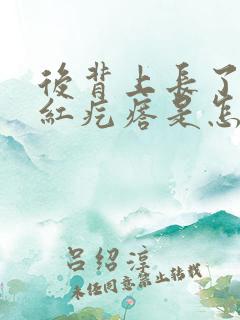 後背上長了
紅疙瘩是怎
吕绍淳
未任同意禁止转载